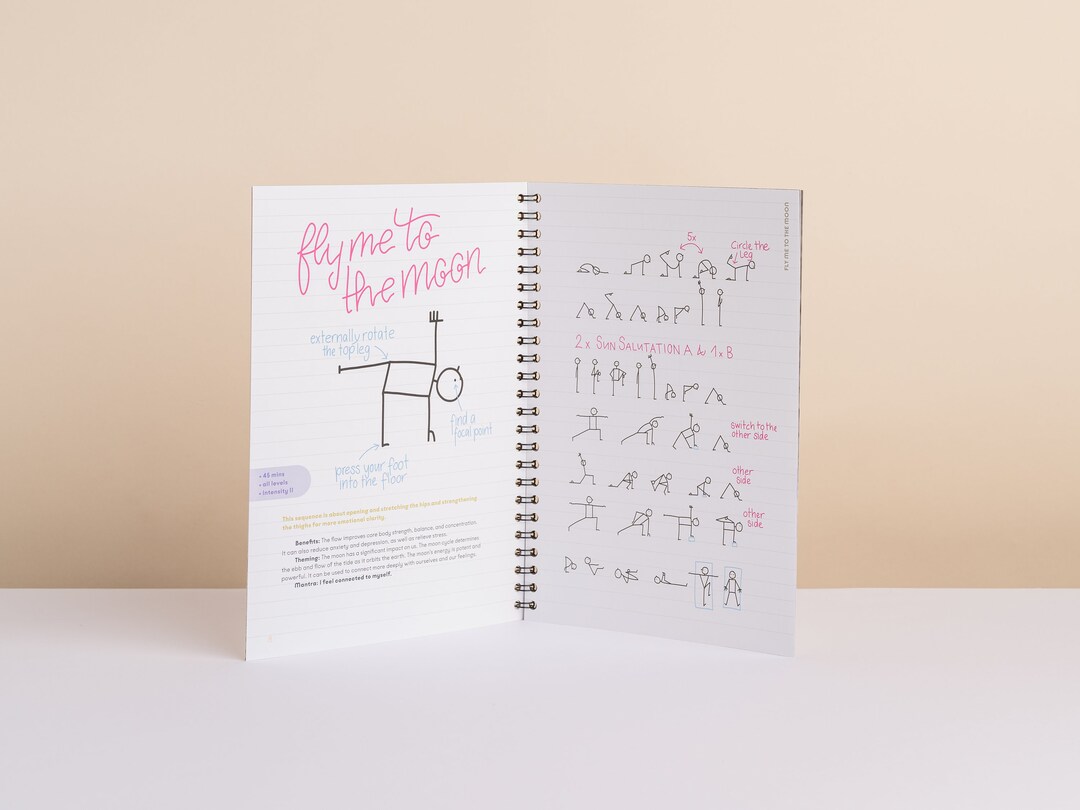 fly me to
the moon
externally rotate
the top leg
find a
focal point
press your foot
into the floor
• 45 mins
• all levels
• intensity II
This sequence is about opening and stretching the hips and strengthening
the thighs for more emotional clarity.
Benefits: The flow improves core body strength, balance, and concentration.
It can also reduce anxiety and depression, as well as relieve stress.
Theming: The moon has a significant impact on us. The moon cycle determines
the ebb and flow of the tide as it orbits the earth. The moon's energy is potent and
powerful. It can be used to connect more deeply with ourselves and our feelings.
Mantra: I feel connected to myself.
FLY ME TO THE MOON
5x
Circle the
Leg
2x SUN SALUTATION A & 1x B
switch to the
other side
other
side
other
side